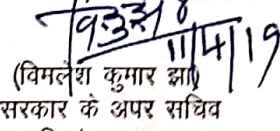 11/4/19
(विमलेश कुमार झा)
सरकार के अपर सचिव